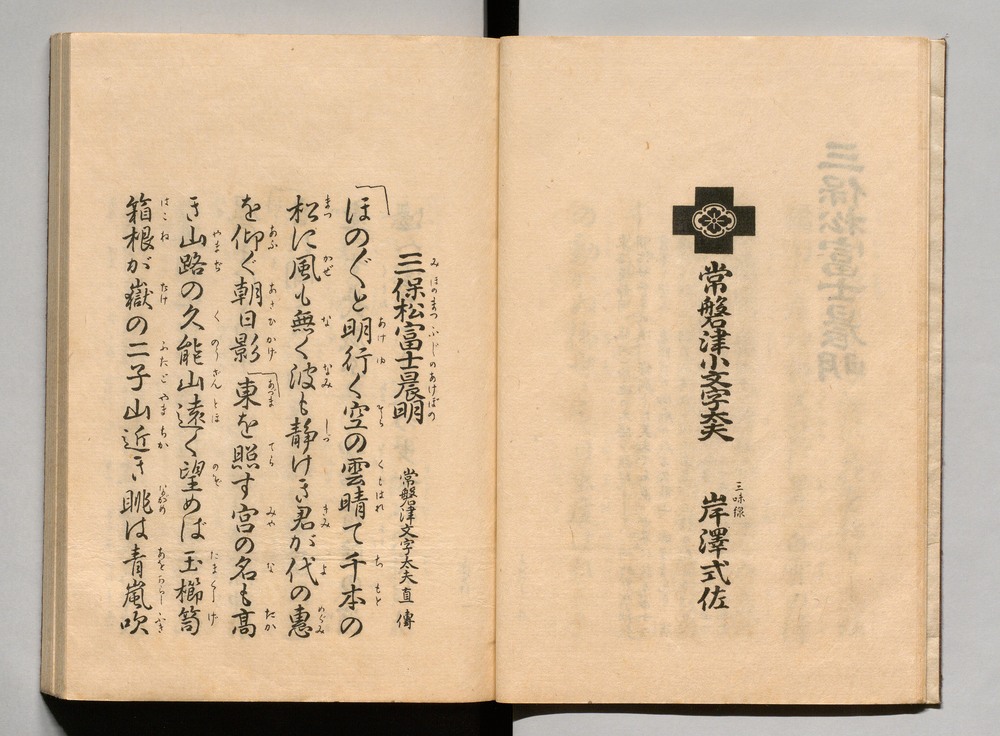 常磐津小文字太夫
三味線 岸澤式佐
三保松富士晨明
常磐津文字太夫直傳
ほの〴〵と明行く空の雲晴て千本の
松に風も無く波も静けき君が代の恵
を仰ぐ朝日影東を照す宮の名も高
き山路の久能山遠く望めば玉櫛笥
箱根が嶽の二子山近き眺は青嵐吹